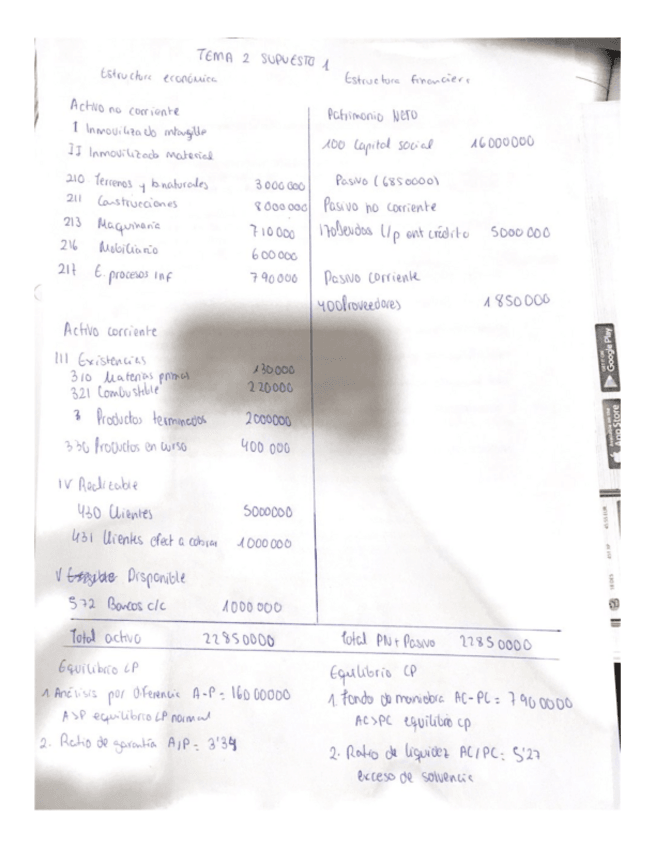 TEMA 2 SUPUESTO 1
Estructura económica
Estructura financiera
Activo no corriente
I Inmovilizado intangible
II Inmovilizado material
210 Terrenos y b naturales 3000000
211 Construcciones 8000000
213 Maquinaria 710000
216 Mobiliario 600000
217 E. procesos inf 790000
Activo corriente
III Existencias
310 Materias primas 130000
321 Combustible 220000
3 Productos terminados 2000000
330 Productos en curso 400 000
IV Realizable
430 Clientes 5000000
431 Clientes efect a cobrar 1000000
V Disponible
572 Bancos c/c 1000 000
Total activo 22850000
Patrimonio NETO
100 Capital social 16000000
Pasivo (6850000)
Pasivo no corriente
170 Deudas l/p ent crédito 5000 000
Pasivo corriente
400 Proveedores 1850000
Total PN + Pasivo 22850000
Equilibrio LP
1. Análisis por diferencia A-P = 16000000
A>P equilibrio LP normal
2. Ratio de garantía A/P = 3'34
Equilibrio CP
1. Fondo de maniobra AC-PC = 7900000
AC>PC equilibrio cp
2. Ratio de liquidez AC/PC = 5'27
exceso de solvencia
Google Play
App Store